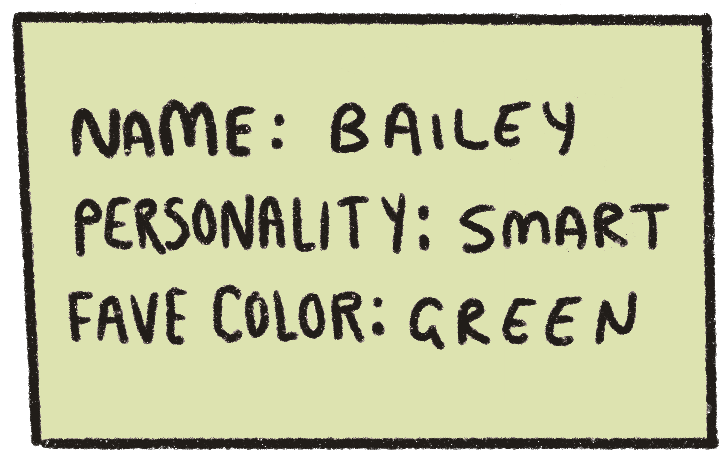 NAME: BAILEY
PERSONALITY: SMART
FAVE COLOR: GREEN